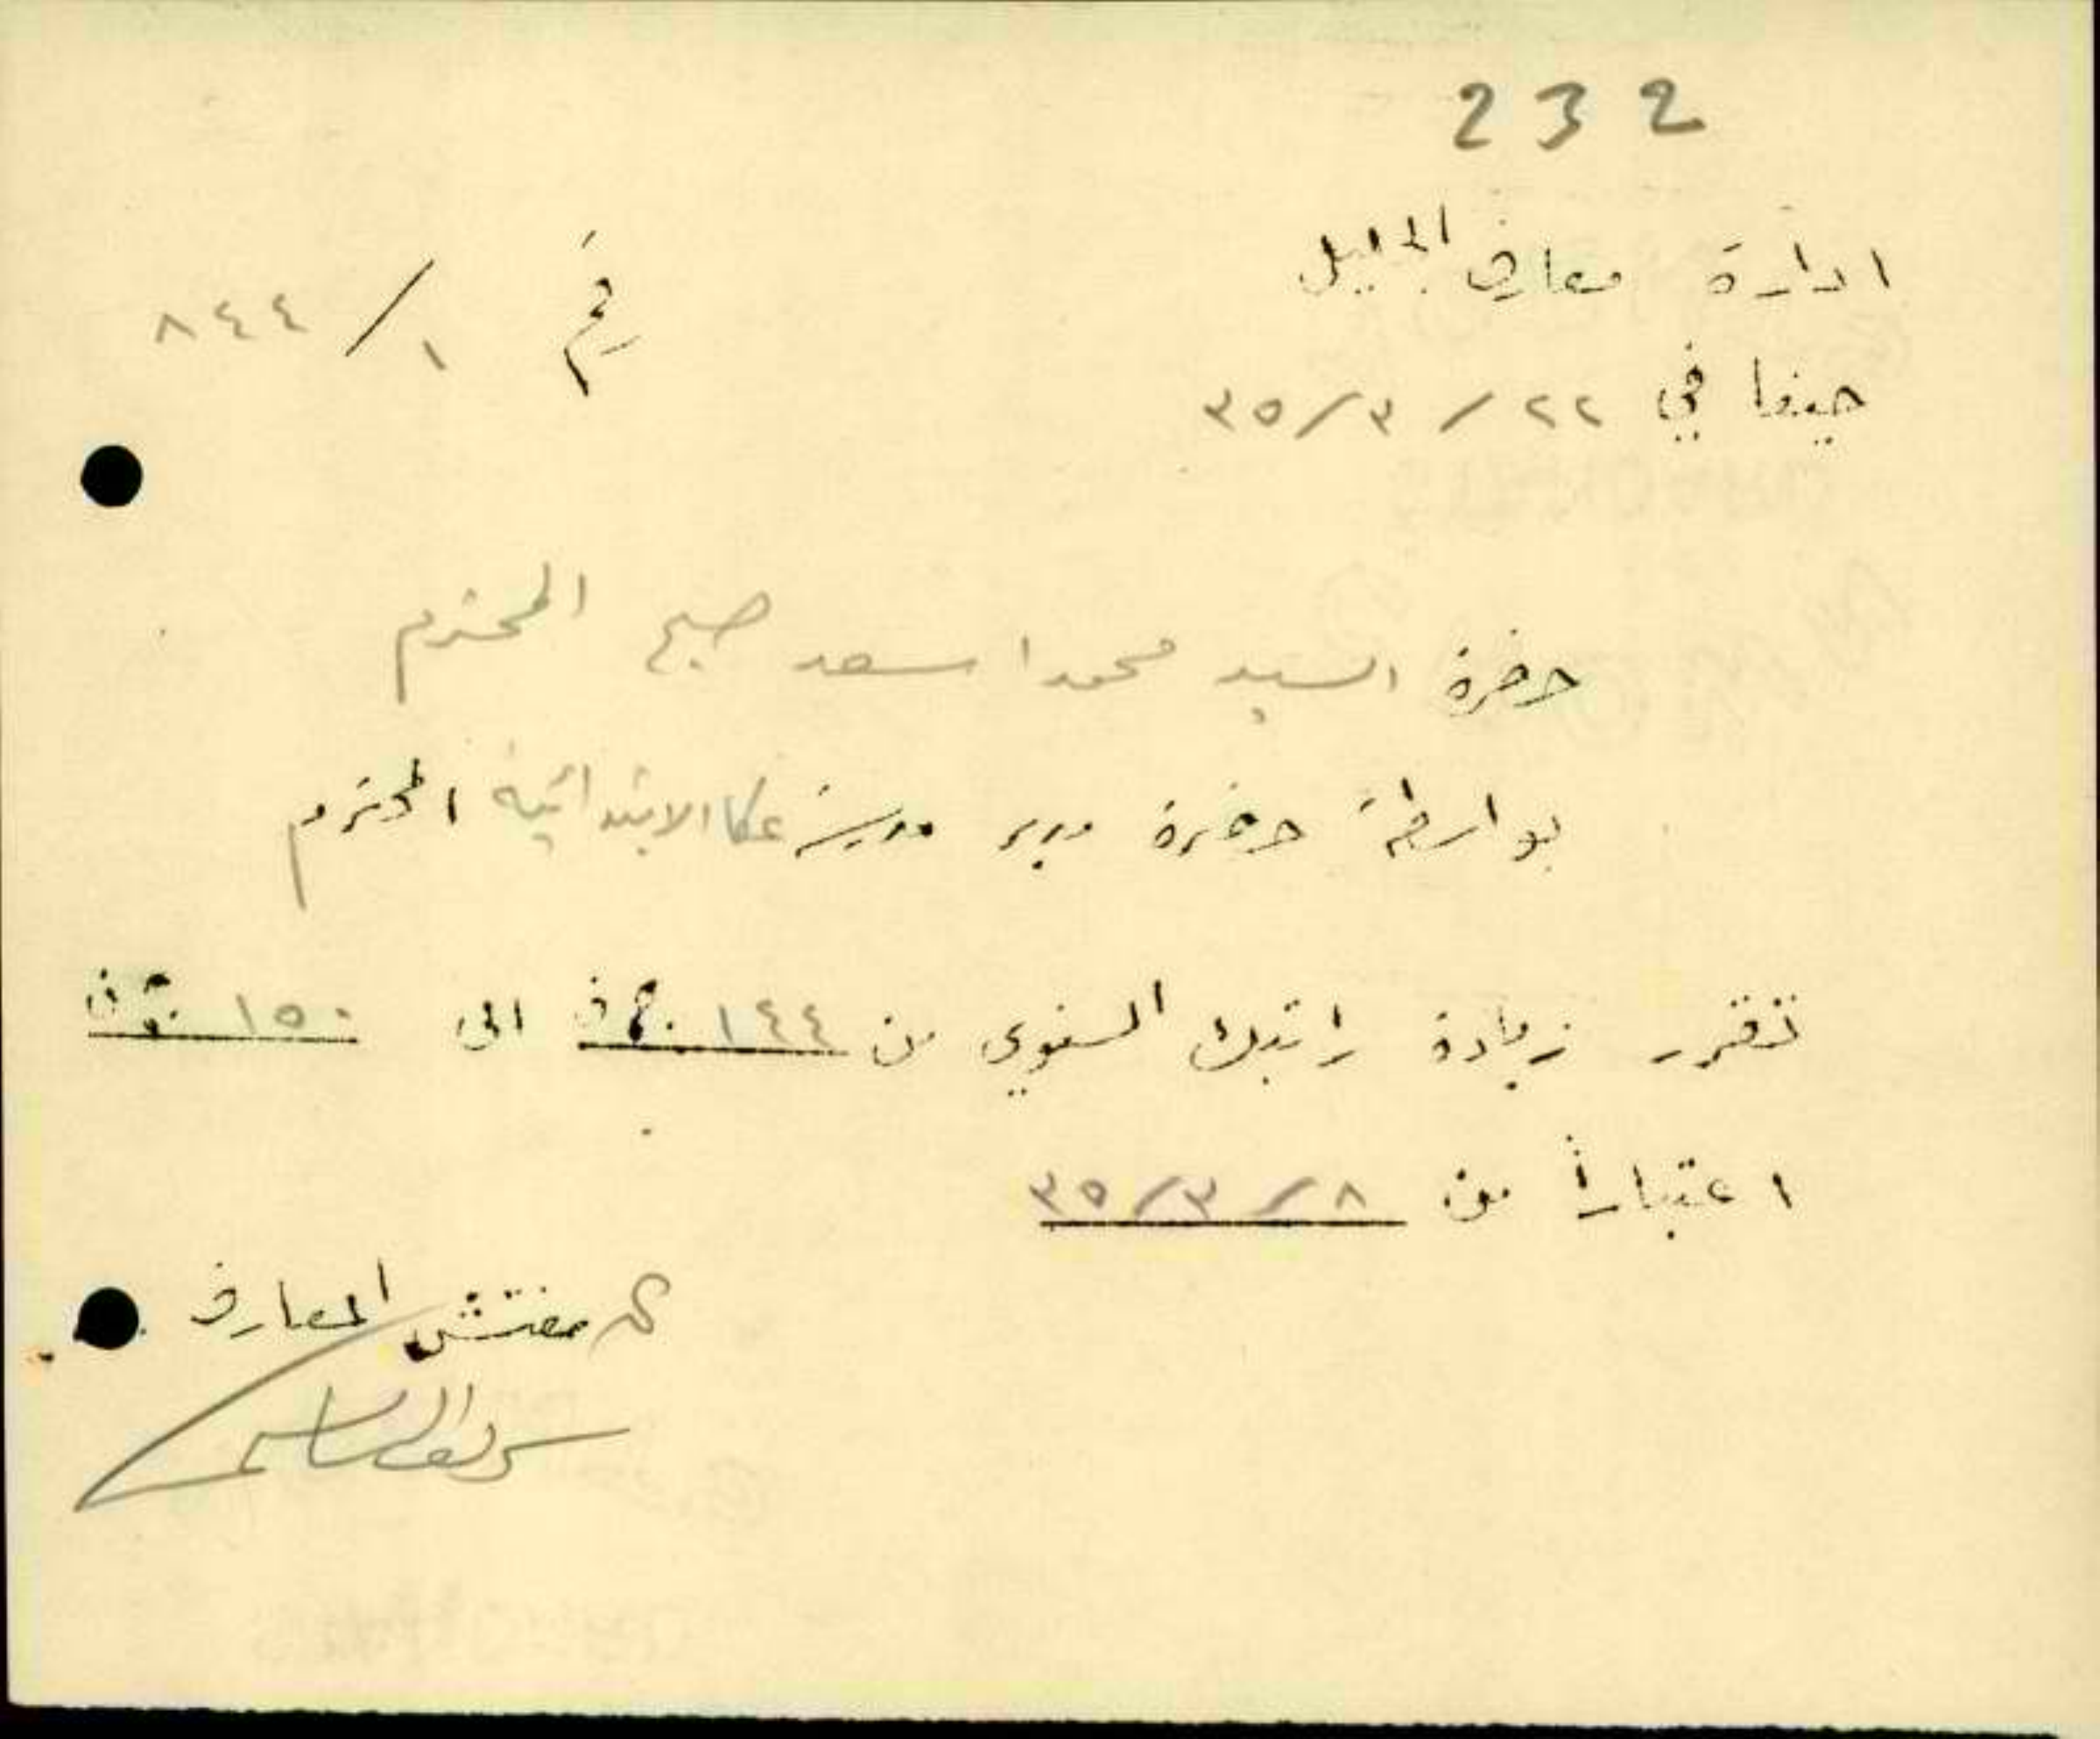 232
ادارة معارف الجليل
رقم ١/٨٤٤
حيفا في ٢٢/٣/٣٥
حضرة السيد محمد اسعد صبح المحترم
بواسطة حضرة مدير مدرسة عكا الابتدائية المحترم
تقرر زيادة راتبك السنوي من ١٤٤ ج ف الى ١٥٠ ج ف
اعتباراً من ٨/٣/٣٥
مفتش المعارف